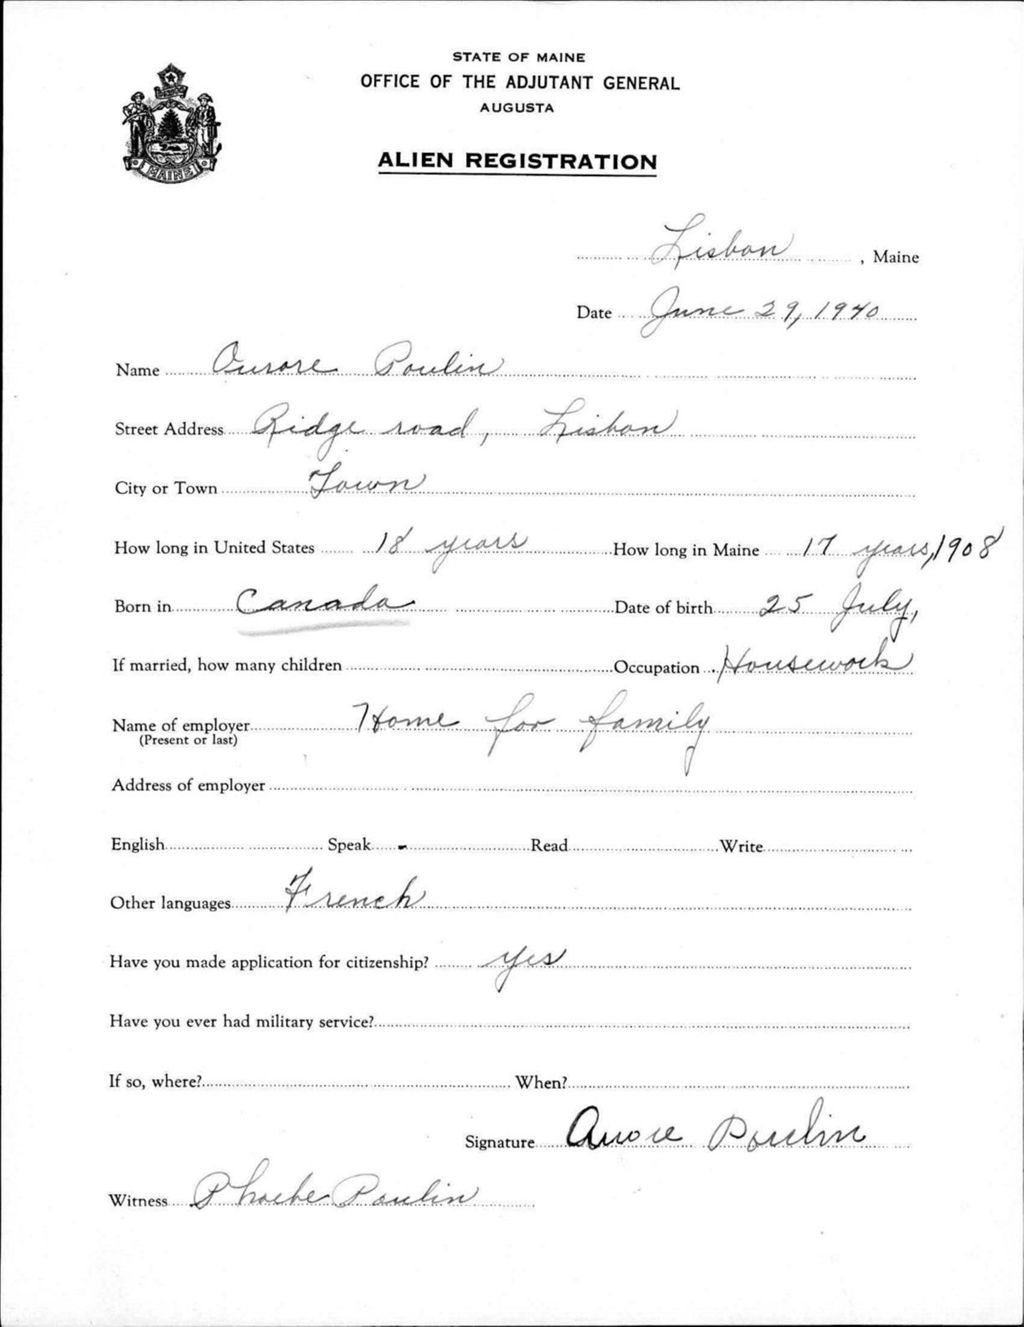 STATE OF MAINE
OFFICE OF THE ADJUTANT GENERAL
AUGUSTA
ALIEN REGISTRATION
MAINE
Lisbon, Maine
Date June 29, 1940
Name Aurore Poulin
Street Address Ridge road, Lisbon
City or Town Town
How long in United States 18 years How long in Maine 17 years, 1908
Born in Canada Date of birth 25 July,
If married, how many children Occupation Housework
Name of employer Home for family
(Present or last)
Address of employer
English Speak - Read Write
Other languages French
Have you made application for citizenship? yes
Have you ever had military service?
If so, where? When?
Signature Aurore Poulin
Witness Phoebe Poulin